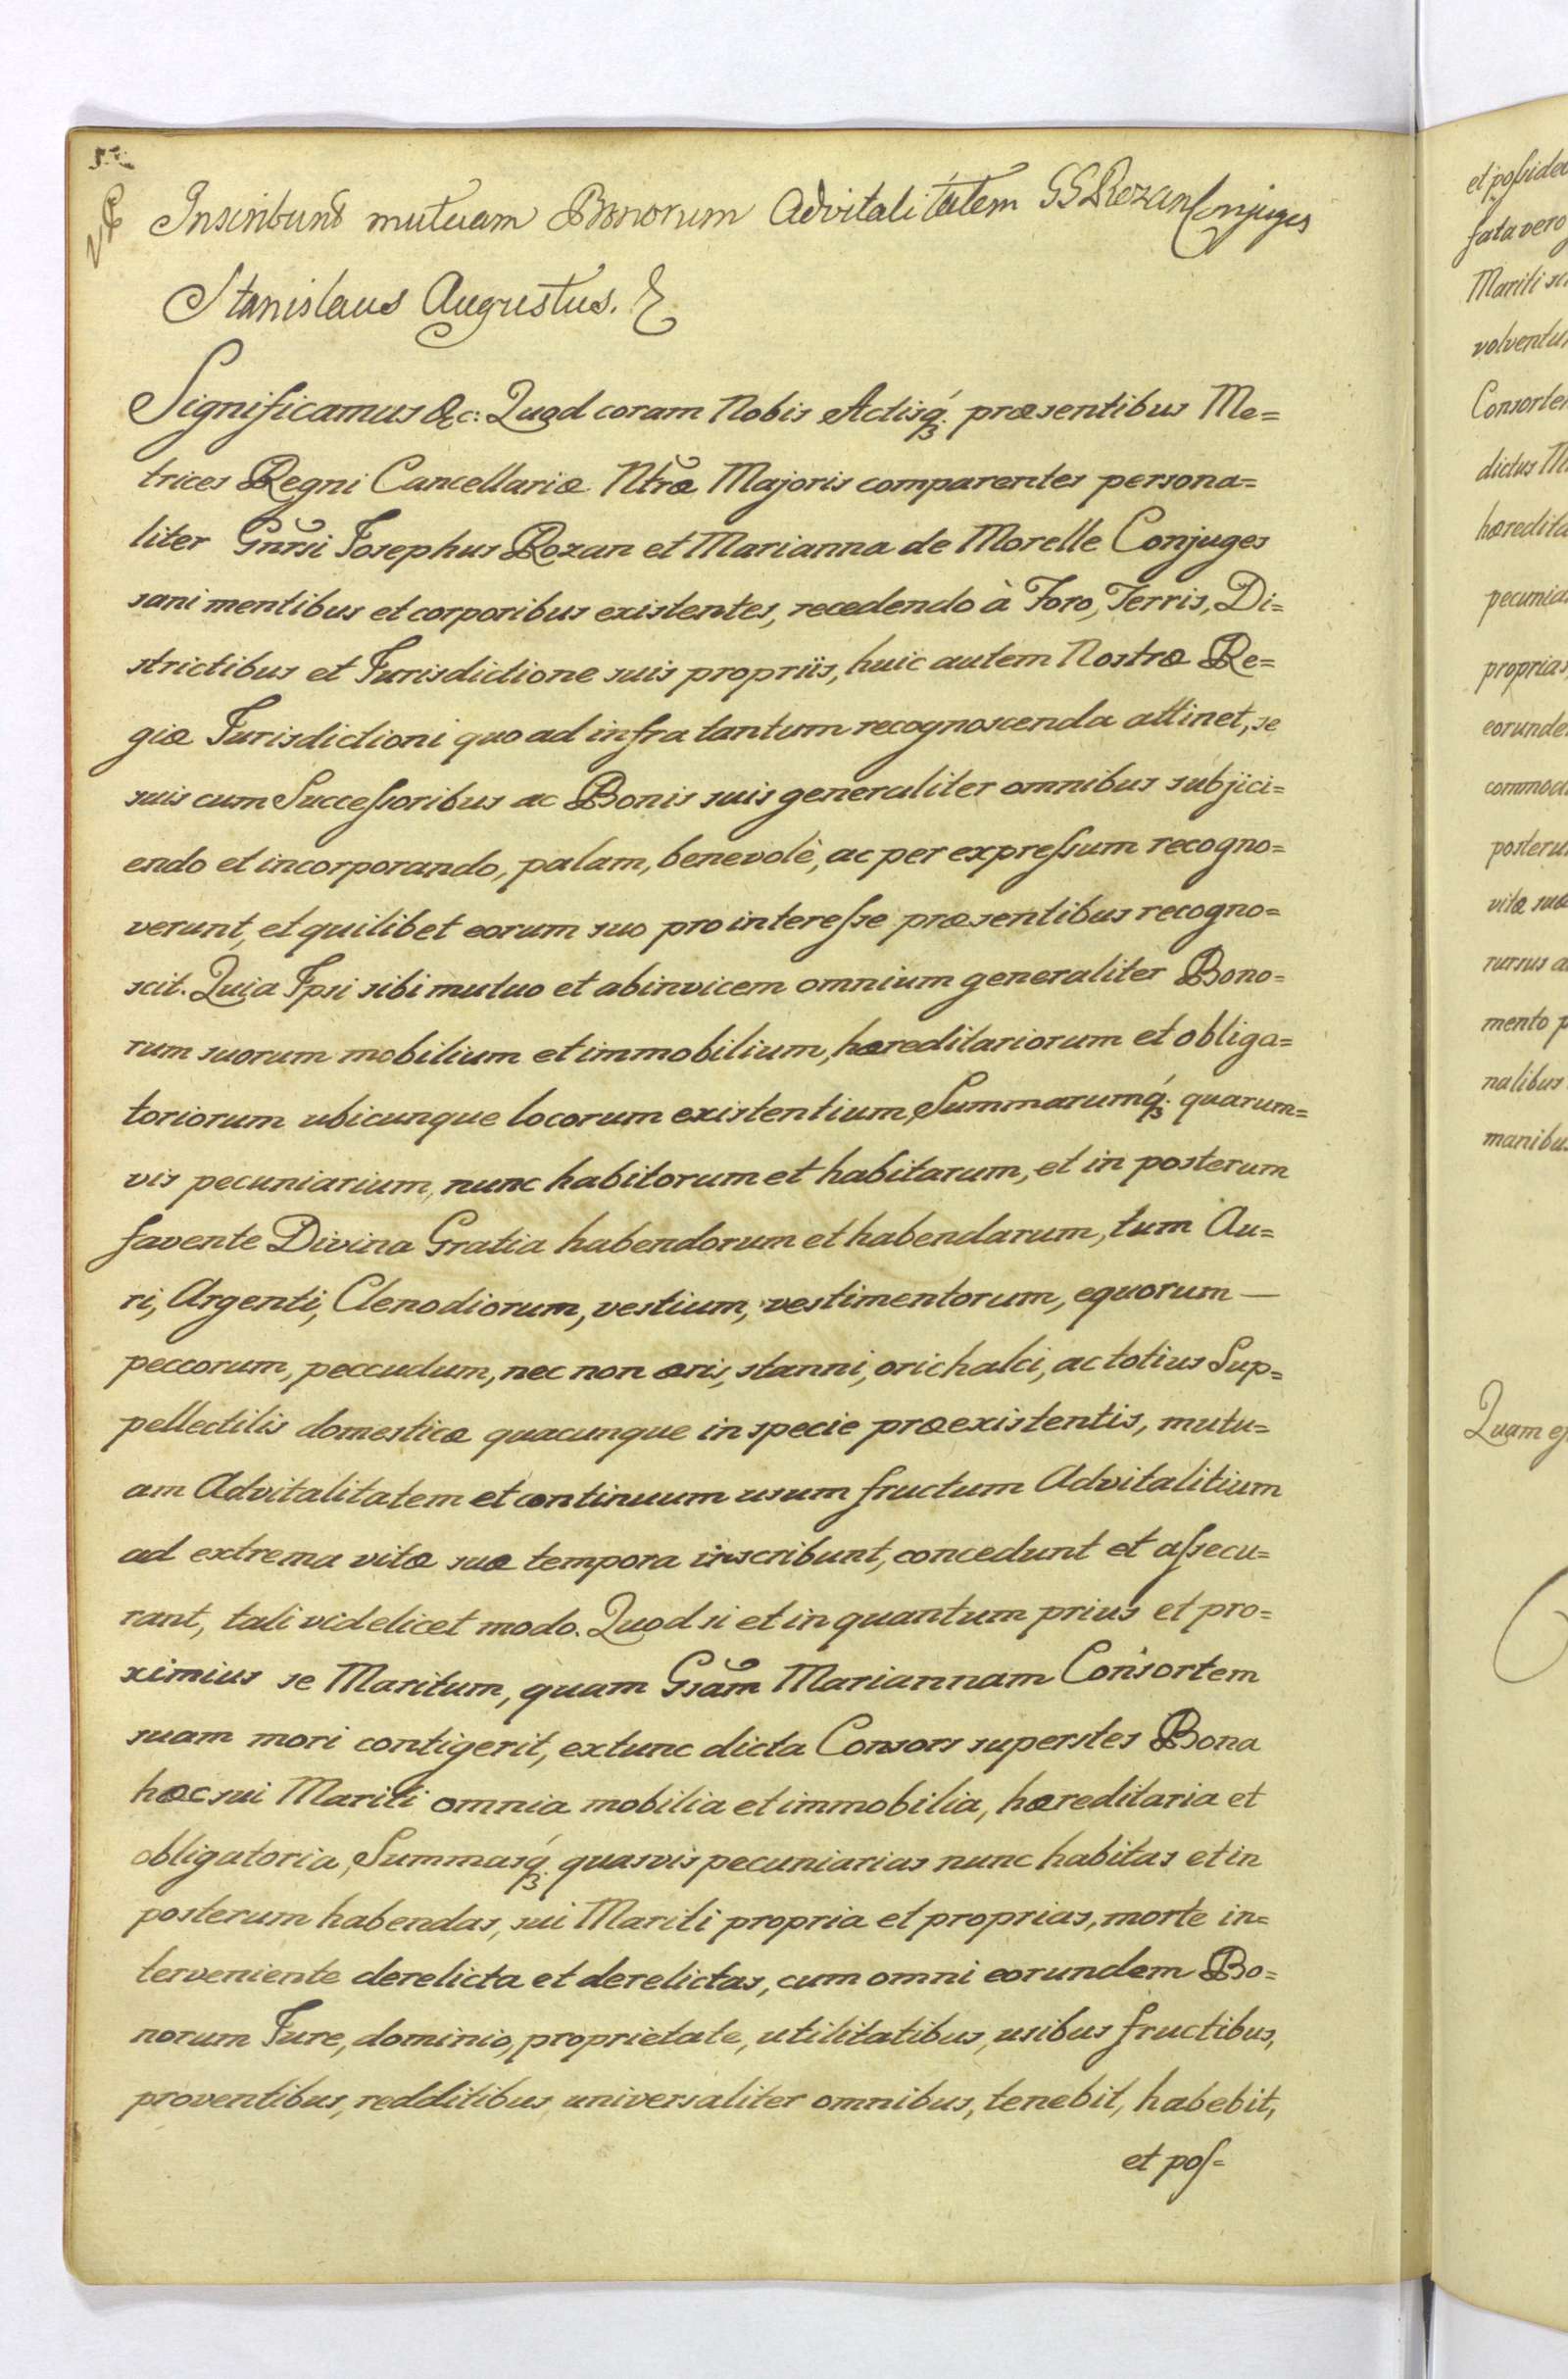 Inscribunt mutuam Bonorum Advitalitatem GG Rozan Conjuges
Stanislaus Augustus. &
Significamus &c: Quod coram Nobis Actisq́ꝫ præsentibus Me=
trices Regni Cancellariæ Ntræ Majoris comparentes persona=
liter Gnrsi Josephus Rozan et Marianna de Morelle Conjuges
sani mentibus et corporibus existentes, recedendo à Foro, Terris, Di=
strictibus et Jurisdictione suis propriis, huic autem Nostræ Re=
giæ Jurisdictioni quo ad infra tantum recognoscenda attinet, se
suis cum Succeſsoribus ac Bonis suis generaliter omnibus subjici=
endo et incorporando, palam, benevolè, ac per expreſsum recogno=
verunt, et quilibet eorum suo pro intereſse præsentibus recogno=
scit. Quia Ipsi sibi mutuo et abinvicem omnium generaliter Bono=
rum suorum mobilium et immobilium, hæreditariorum et obliga=
toriorum ubicunque locorum existentium, Summarumq́ꝫ quarum=
vis pecuniarium, nunc habitorum et habitarum, et in posterum
favente Divina Gratia habendorum et habendarum, tum Au=
ri, Argenti, Clenodiorum, vestium, vestimentorum, equorum —
peccorum, peccudum, nec non æris, stanni, orichalci, ac totius Sup=
pellectilis domesticæ quacunque in specie præexistentis, mutu=
am Advitalitatem et continuum usum fructum Advitalitium
ad extrema vitæ suæ tempora inscribunt, concedunt et aſsecu=
rant, tali videlicet modo. Quod si et in quantum prius et pro=
ximius se Maritum, quam Gsam Mariannam Consortem
suam mori contigerit, extunc dicta Consors superstes Bona
hæc sui Mariti omnia mobilia et immobilia, hæreditaria et
obligatoria, Summasq́ꝫ quasvis pecuniarias nunc habitas et in
posterum habendas, sui Mariti propria et proprias, morte in=
terveniente derelicta et derelictas, cum omni eorundem Bo=
norum Jure, dominio, proprietate, utilitatibus, usibus fructibus,
proventibus, redditibus universaliter omnibus, tenebit, habebit,
et poſ=
et poſside
fata vero
Mariti
volventu
Consorte
dictus
hæredita
pecunia
proprias,
eorunde
commod
posteru
vitæ suæ
rursus a
mento p
nalibus
manibu
Quam